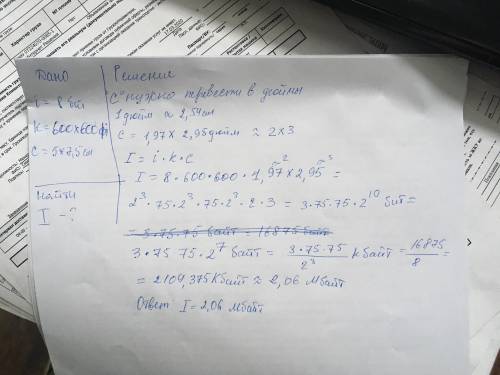 Дано
i = 8 бит
k = 600x600
C = 5x7,5см
Найти
I - ?
Решение
C нужно перевести в дюймы
1 дюйм ≈ 2,54см
C = 1,97 x 2,95 дюйм ≈ 2x3
I = i · k · c
I = 8 · 600 · 600 · 1,97 x 2,95 =
2 3
2³ · 75 · 2³ · 75 · 2³ · 2 · 3 = 3 · 75 · 75 · 2¹⁰ бит =
= 3·75·75 байт = 16875 байт
3 · 75 75 · 2⁷ байт = 3·75·75/2³ кбайт = 16875/8 =
= 2104,375 Кбайт ≈ 2,06 Мбайт
Ответ I = 2,06 Мбайт